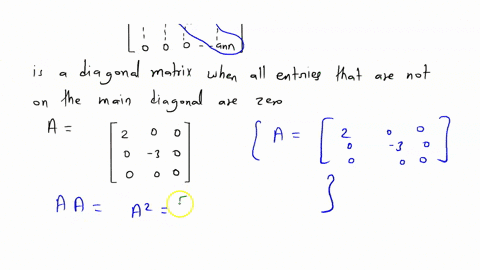 0 0 0 - - ann
is a diagonal matrix when all entries that are not
on the main diagonal are zero
A = [ 2 0 0
0 -3 0
0 0 0 ]
{ A = [ 2 0 0
0 -3 0
0 0 0 ]
}
A A = A² = [